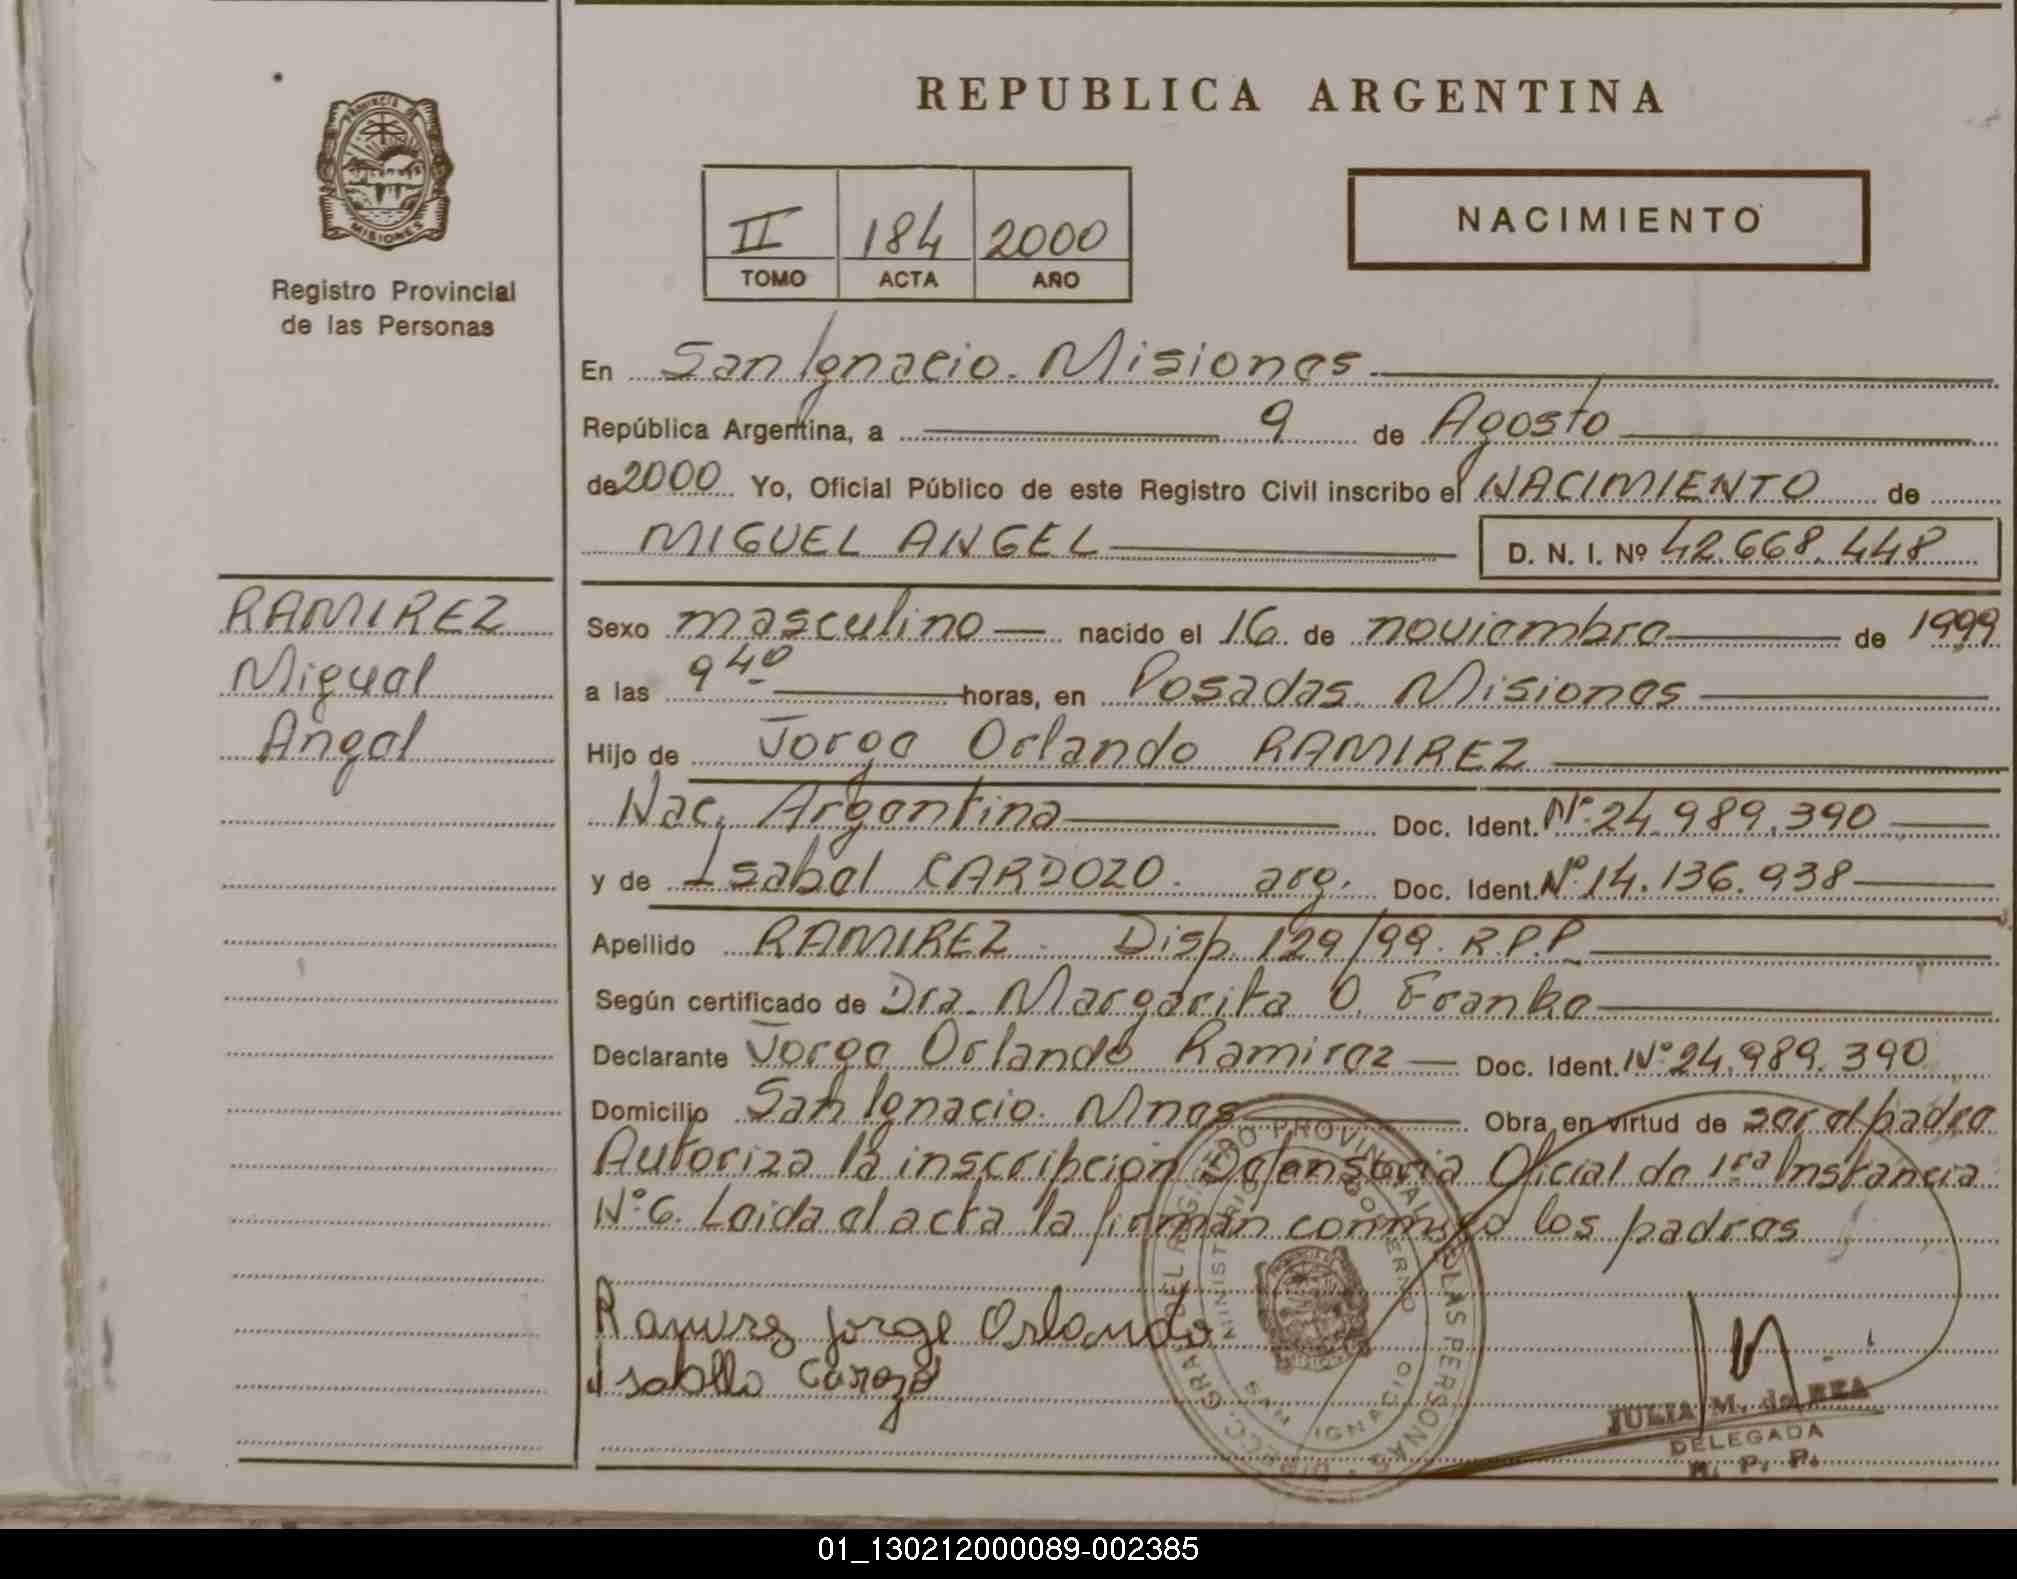 REPUBLICA ARGENTINA
PROVINCIA DE
MISIONES
Registro Provincial
de las Personas
II 184 2000
TOMO ACTA AÑO
NACIMIENTO
En San Ignacio. Misiones
República Argentina, a 9 de Agosto
de 2000 Yo, Oficial Público de este Registro Civil inscribo el NACIMIENTO de
MIGUEL ANGEL D. N. I. Nº 42.668.448
RAMIREZ
Miguel
Angel
Sexo masculino nacido el 16 de noviembre de 1999
a las 9 40 horas, en Posadas. Misiones
Hijo de Jorge Orlando RAMIREZ
Nac. Argentina Doc. Ident. Nº 24.989.390
y de Isabel CARDOZO. arg. Doc. Ident. Nº 14.136.938
Apellido RAMIREZ. Disp. 129/99. R.P.P.
Según certificado de Dra. Margarita O. Franke
Declarante Jorge Orlando Ramirez Doc. Ident. Nº 24.989.390
Domicilio San Ignacio. Mnes Obra en virtud de ser el padre
Autoriza la inscripción Defensoria Oficial de 1ra Instancia
Nº 6. Leida el acta la firman conmigo los padres
Ramirez Jorge Orlando
DIRECC. GRAL. DEL REGISTRO PROVINCIAL DE LAS PERSONAS
MINISTERIO DE GOBIERNO
SAN IGNACIO
JULIA M. de REA
DELEGADA
R. P. P.
01_130212000089-002385